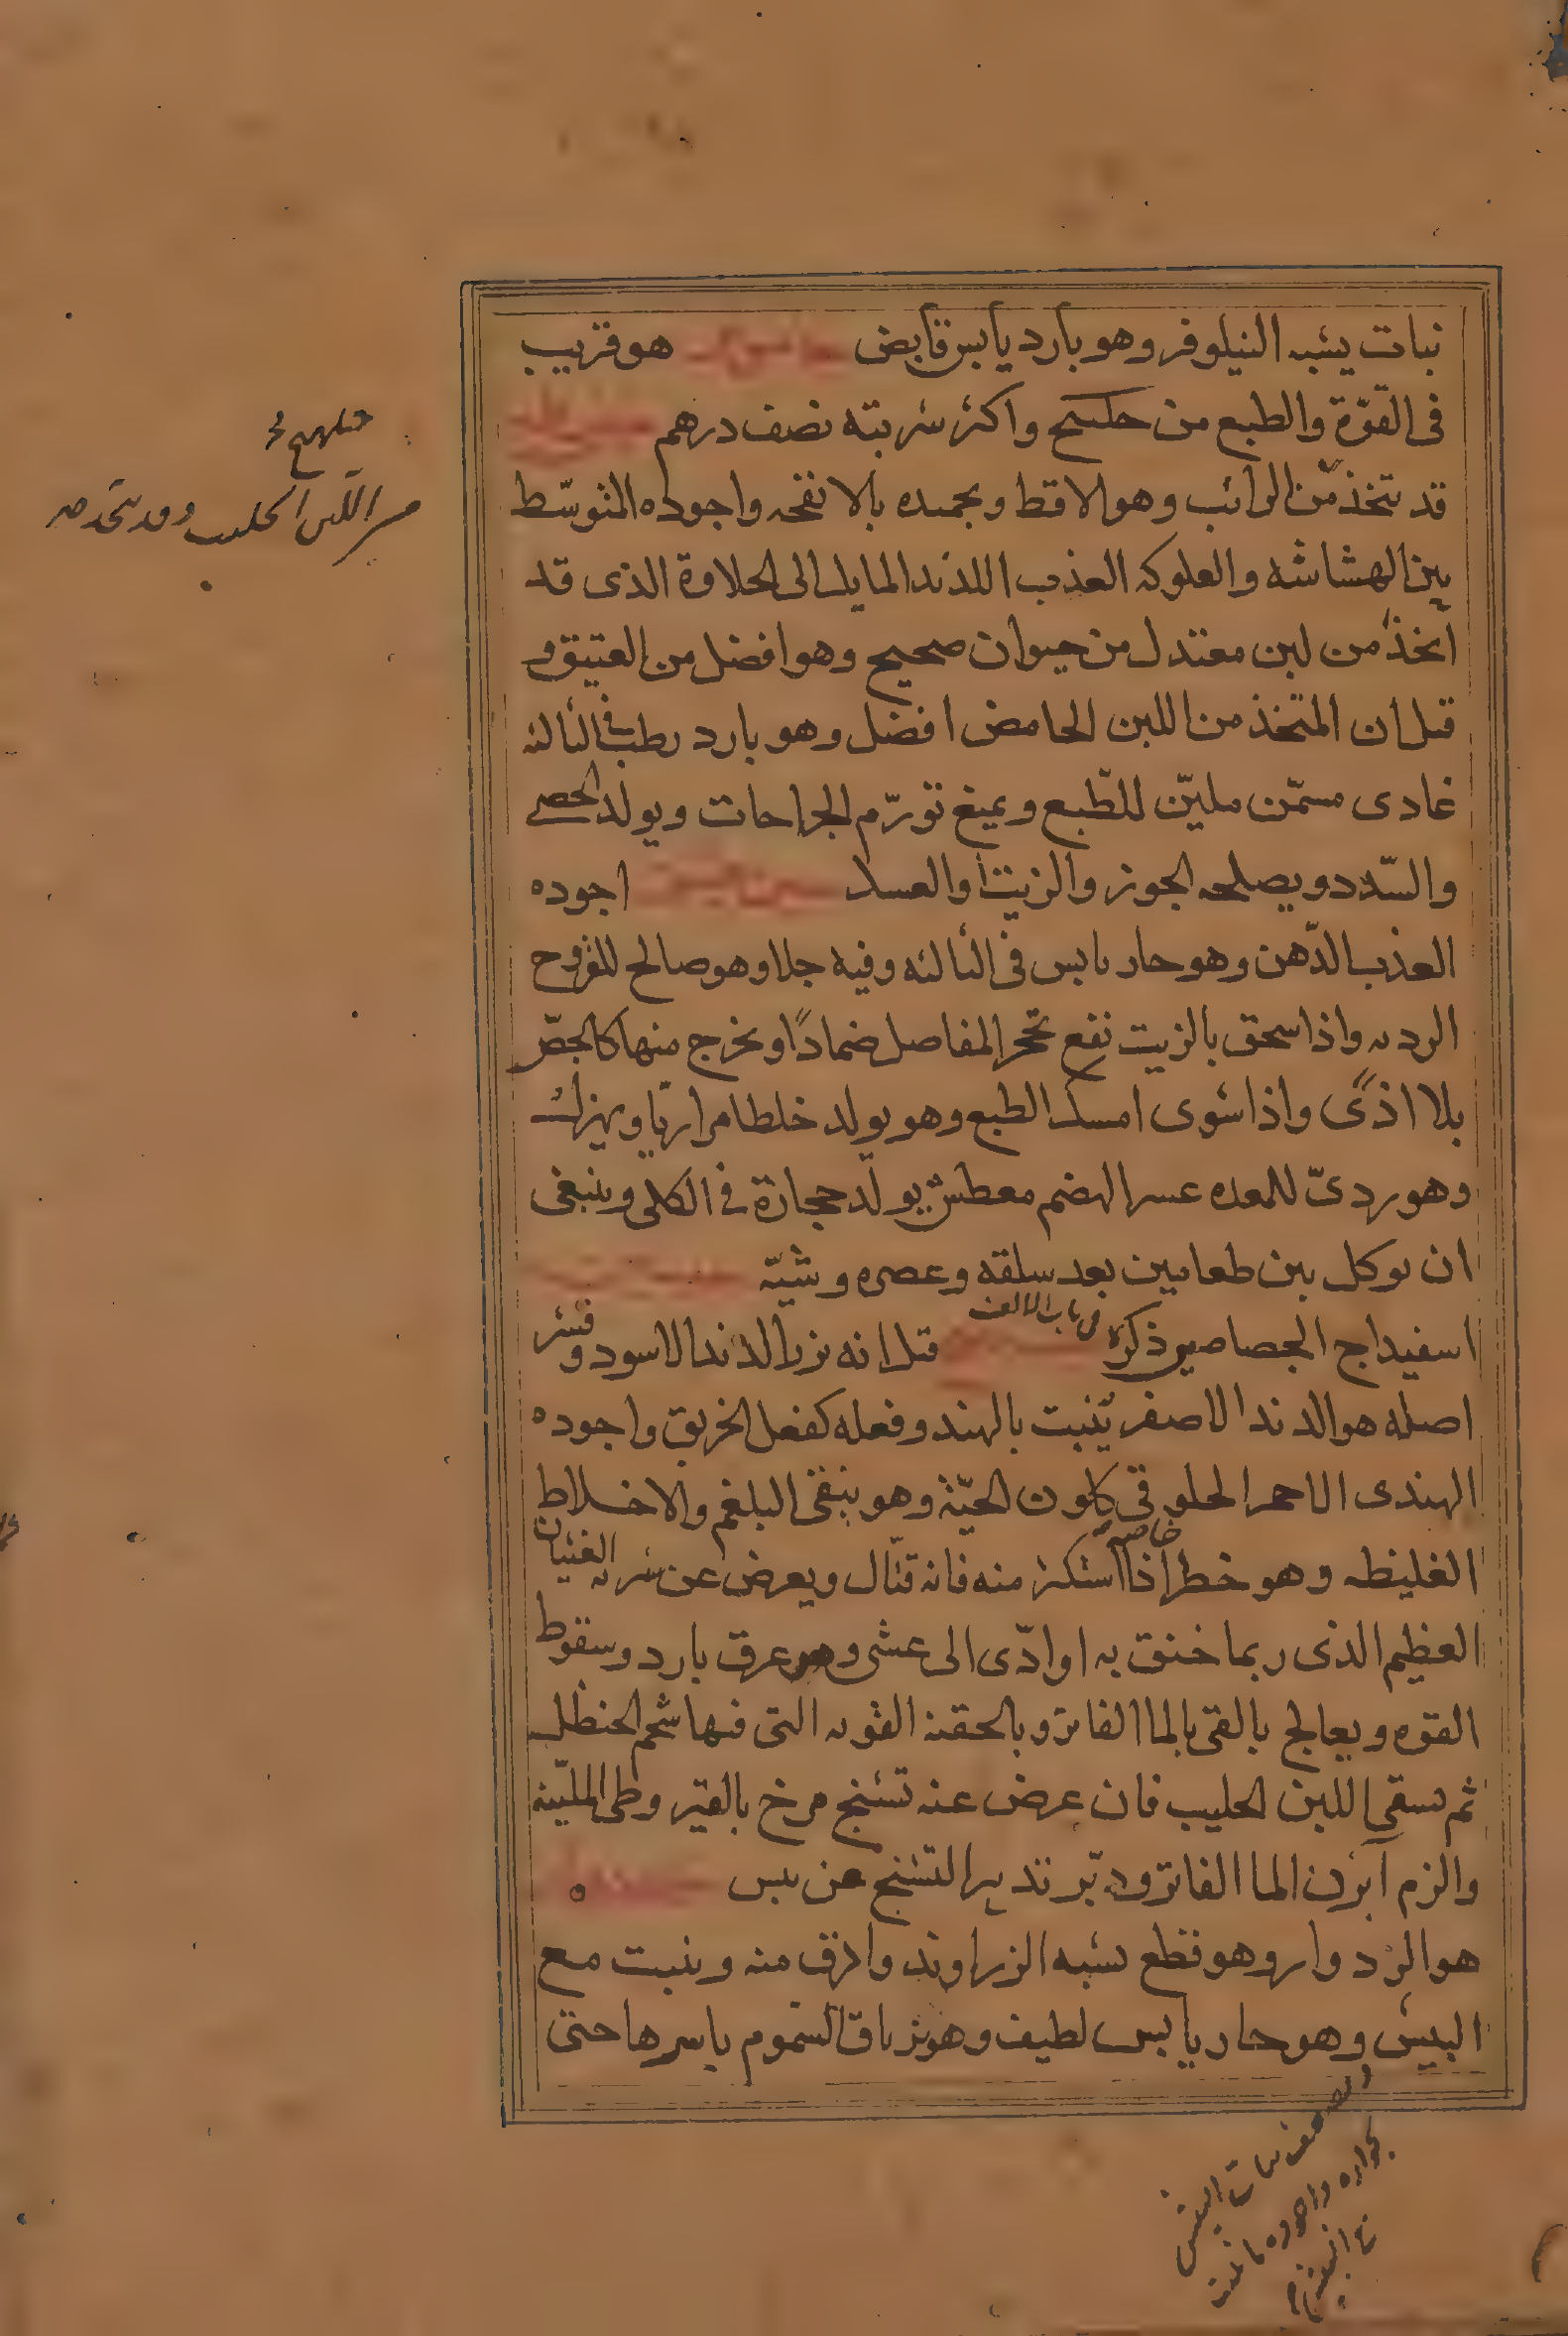 نبات يشبه النيلوفر وهو بارد يابس قابض هو قريب
فى القوّة والطبع من واكثر شربته نصف درهم
قد يتخذ من الرائب وهو الاقط وبجمده بالانفحه واجوده المتوسّط
بين الهشاشه والعلوكه العذب اللذيذ المايل الى الحلاوة الذى قد
اتخذ من لبن معتدل من حيوان صحيح وهو افضل من العتيق و
قيل ان المتخذ من اللبن الحامض افضل وهو بارد رطب فى الثالثه
غادى مسمّن مليّن للطّبع ويمنع تورّم الجراحات ويولد الحصى
والسّدد ويصلحه الجوز والزيت او العسل اجوده
العذب الدّهن وهو حار يابس فى الثالثه وفيه جلا وهو صالح للقروح
الرديه واذا سحق بالزيت نفع تحجر المفاصل ضمادًا ويخرج منها كالجصّ
بلا اذًى واذا شوى امسك الطبع وهو يولد خلطا مراريّا ويهزل
وهو ردىّ للمعده عسر الهضم معطش يولد حجارة فى الكلى وينبغى
ان يوكل بين طعامين بعد سلقه وعصره وشيّه
اسفيداج الجصاصين ذكره فى باب الالف قيل انه بزر الدند الاسود وقشر
اصله هو الدند الاصفر ينبت بالهند وفعله كفعل الخربق واجوده
الهندى الاحمر الحلوقى كلون الحيّة وهو ينقى البلغم والاخلاط
الغليظه وهو خطر خاصه اذا استكثر منه فانه قتّال ويعرض عن شربه الغثيان
العظيم الذى ربما خنق به او ادّى الى غشى وعرق بارد وسقوط
القوه ويعالج بالقى بالما الفاتر وبالحقنه القويه التى فيها شحم الحنظل
ثم يسقى اللبن الحليب فان عرض عنه تشنج مرخ بالقيروطى الملّينه
والزم آبزن الما الفاتر ودبّر تدبير التشنج عن يبس
هو الزدوار وهو قطع يشبه الزراوند وادق منه وينبت مع
البيش وهو حار يابس لطيف وهو ترياق السّموم باسرها حتى
من اللبن الحليب وقد يتخذ من